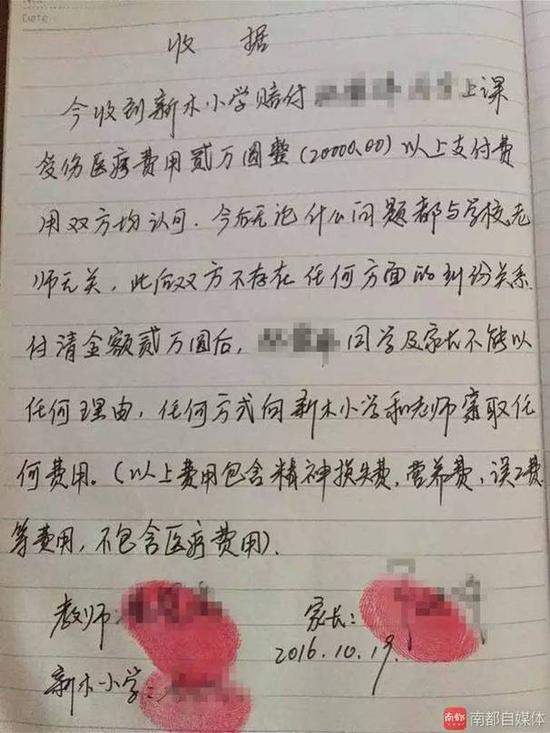 DATE
收 据
今收到新木小学赔付 上课
受伤医疗费用贰万圆整(20000.00)以上支付费
用双方均认可.今后无论什么问题都与学校老
师无关,此后双方不存在任何方面的纠纷关系.
付清金额贰万圆后, 同学及家长不能以
任何理由,任何方式向新木小学和老师索取任
何费用.(以上费用包含精神损失费,营养费,误工费
等费用,不包含医疗费用).
教师:
家长:
2016.10.19.
新木小学:
南都 南都自媒体